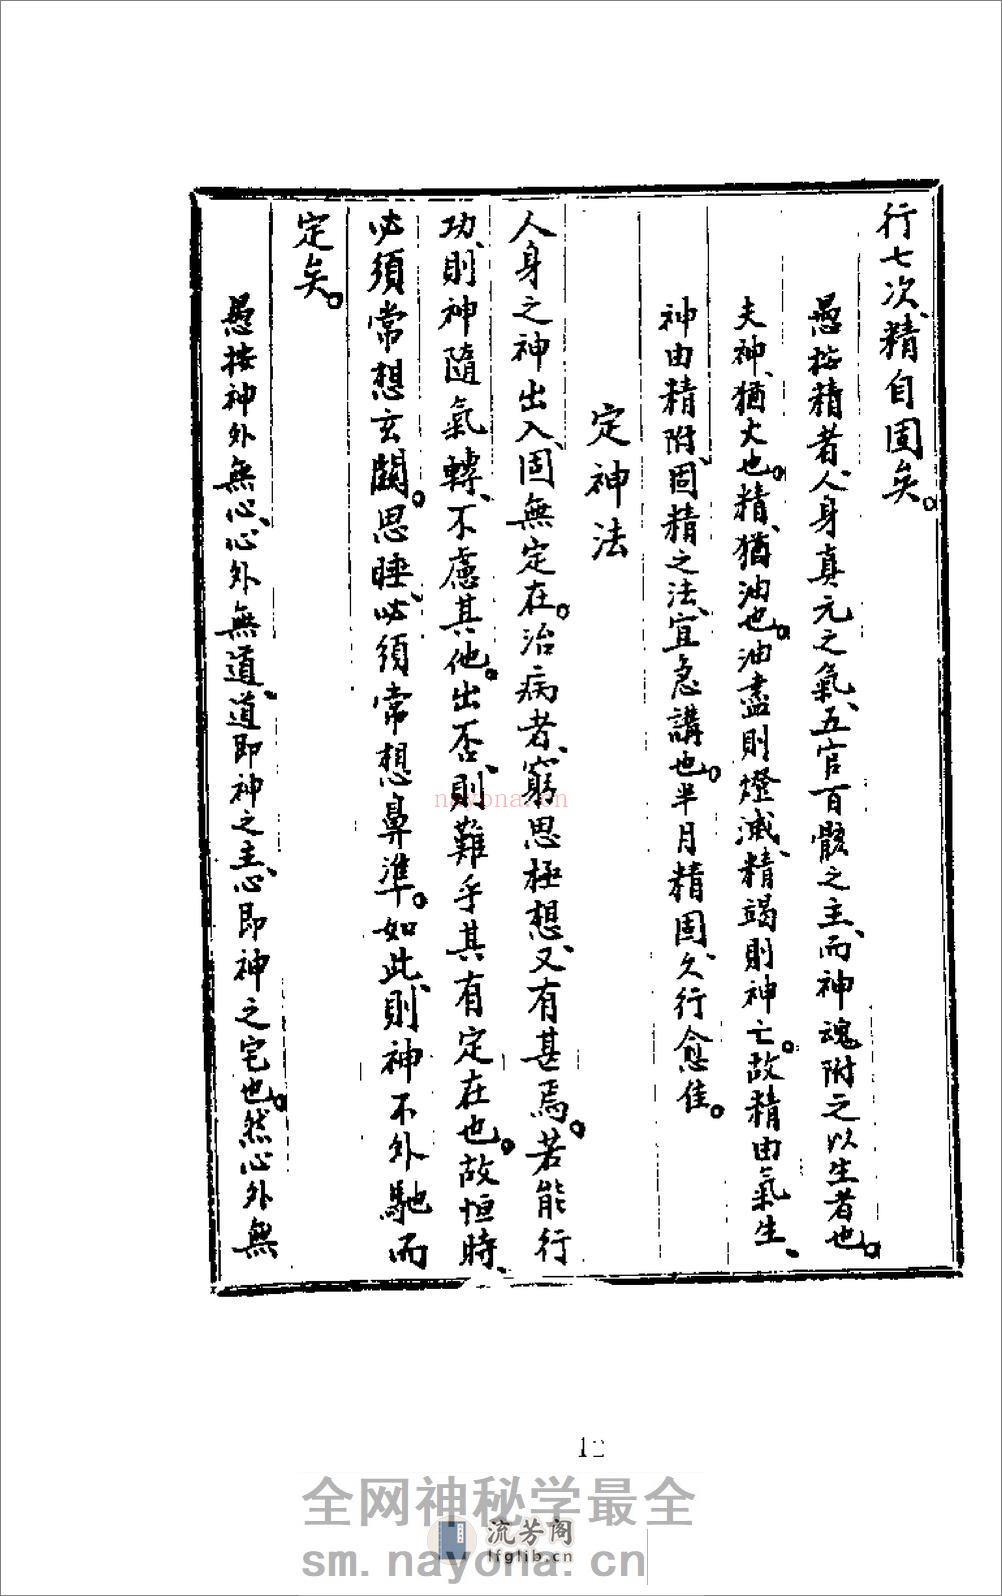 行七次、精自固矣。
愚按精者、人身真元之氣、五官百骸之主、而神魂附之以生者也。
夫神、猶火也。精、猶油也。油盡則燈滅、精竭則神亡。故精由氣生、
神由精附、固精之法、宜急講也。半月精固、久行愈佳。
定神法
人身之神出入、固無定在。治病者、窮思極想、又有甚焉。若能行
功、則神隨氣轉、不慮其他出。否則、難乎其有定在也。故恒時、
必須常想玄關。思睡、必須常想鼻準。如此、則神不外馳而
定矣。
愚按神外無心、心外無道、道即神之主、心即神之宅也。然心外無
nayona.cn
12
全网神秘学最全
流芳阁
lfglib.cn
sm.nayona.cn